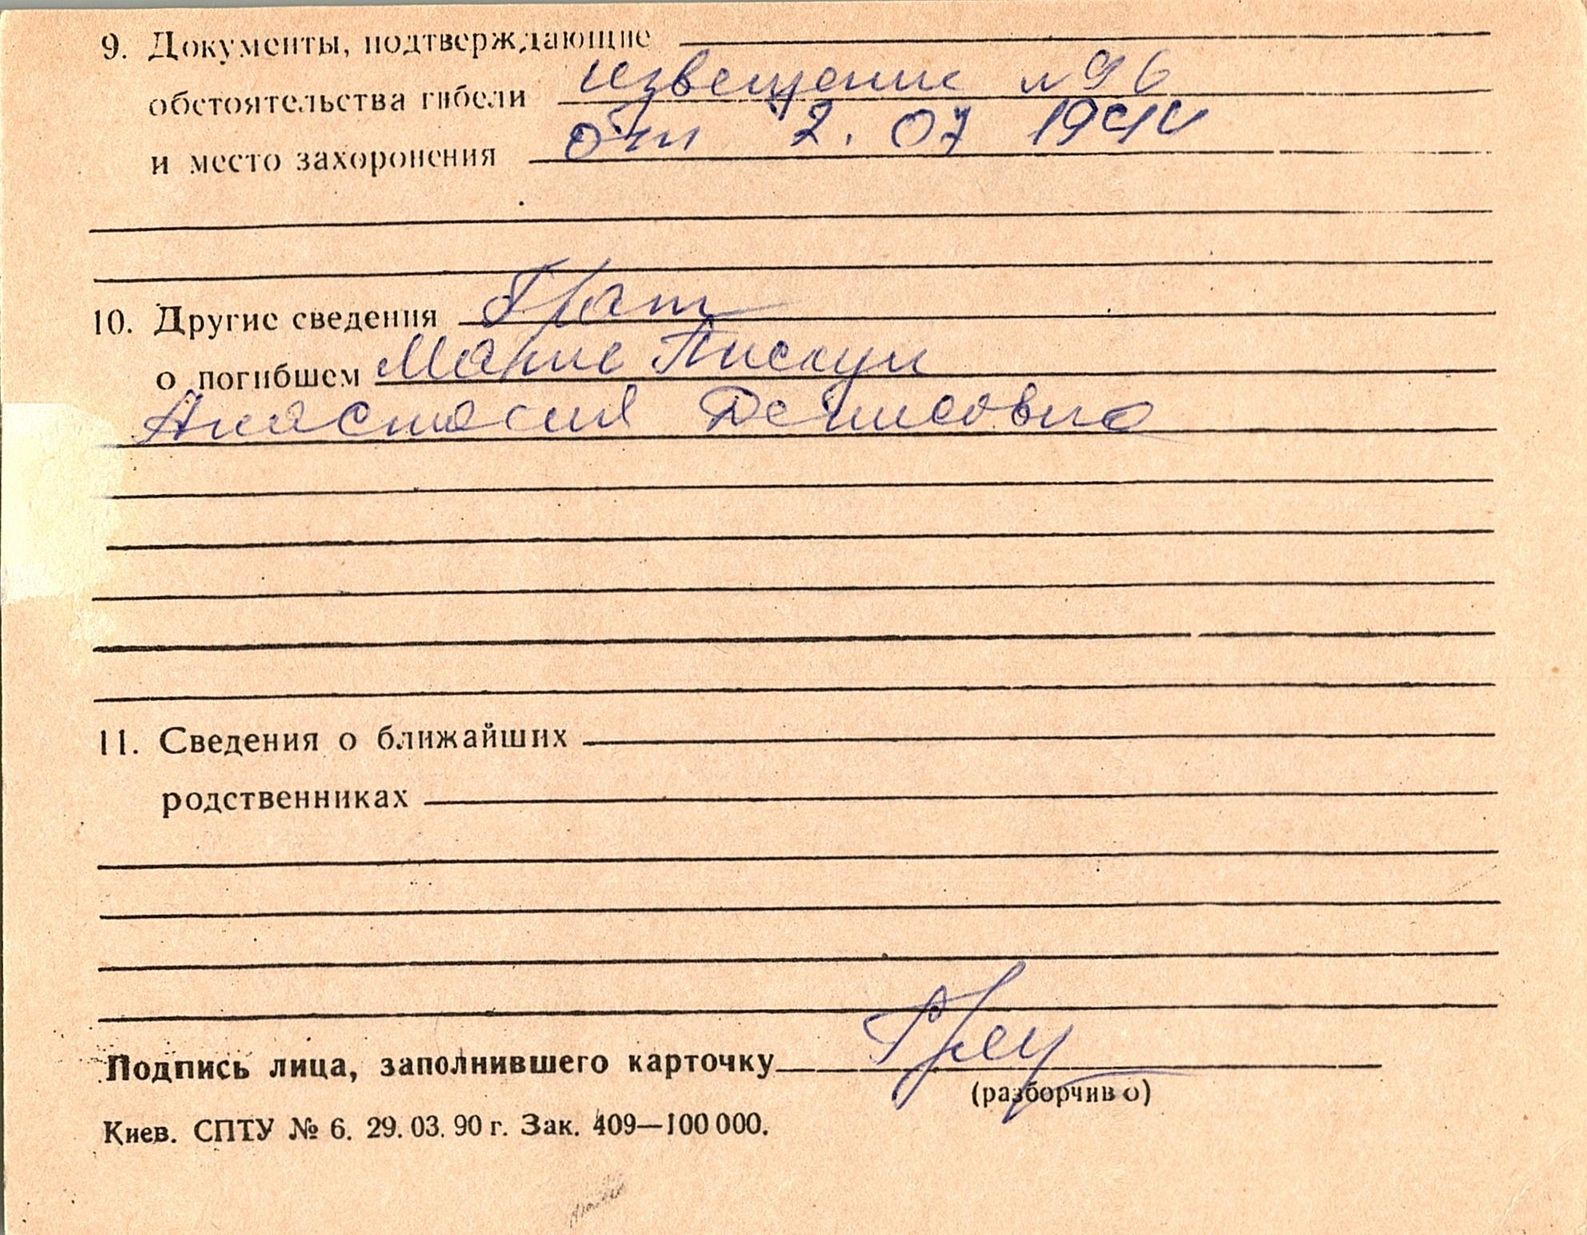 9. Документы, подтверждающие
обстоятельства гибели извещение № 96
и место захоронения от 2. 07 1944
10. Другие сведения Брат
о погибшем Марие Пискун
Анастасия Денисовна
11. Сведения о ближайших
родственниках
Подпись лица, заполнившего карточку
(разборчиво)
Киев. СПТУ № 6. 29. 03. 90 г. Зак. 409—100 000.